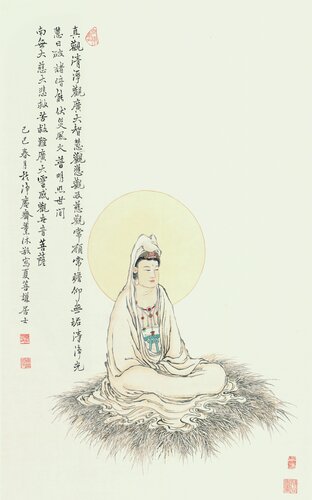 真觀清淨觀廣大智慧觀悲觀及慈觀常願常瞻仰無垢清淨光
慧日破諸暗能伏災風火普明照世間
南無大慈大悲救苦救難廣大靈感觀世音菩薩
己巳春月於淨廬齋葉沐敬寫夏居士